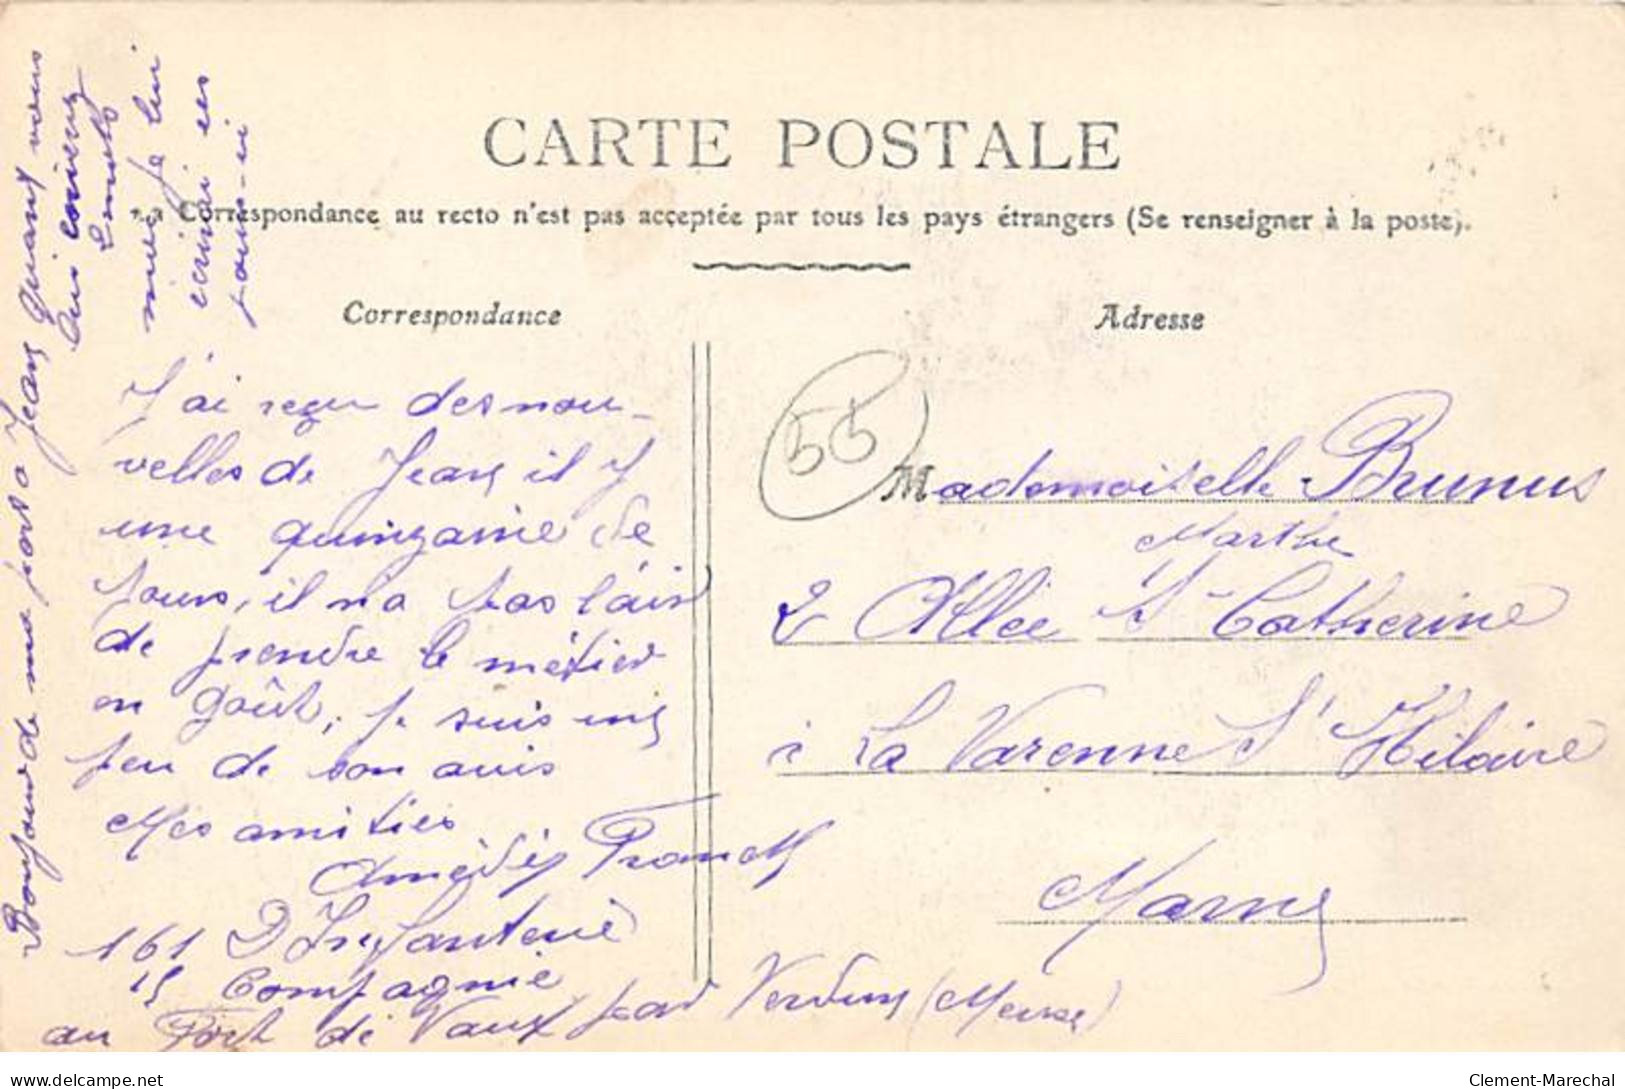 CARTE POSTALE
La Correspondance au recto n'est pas acceptée par tous les pays étrangers (Se renseigner à la poste).
Correspondance
Adresse
J'ai reçu des nou-
velles de Jean il y
une quinzaine de
jours, il n'a pas l'air
de prendre le métier
en goût, je suis un
peu de son avis
Mes amitiés
Amédée Franck
161 D'Infanterie
15 Compagnie
au Fort de Vaux par Verdun (Meuse)
Bonjour de ma part a Jean Quand vous
lui
mais je lui
ecrirai ces
jours-ci
55
Mademoiselle Brunus
Marthe
2 Allée St Catherine
à La Varenne St Hilaire
Marne
Clement-Marechal
delcampe.net